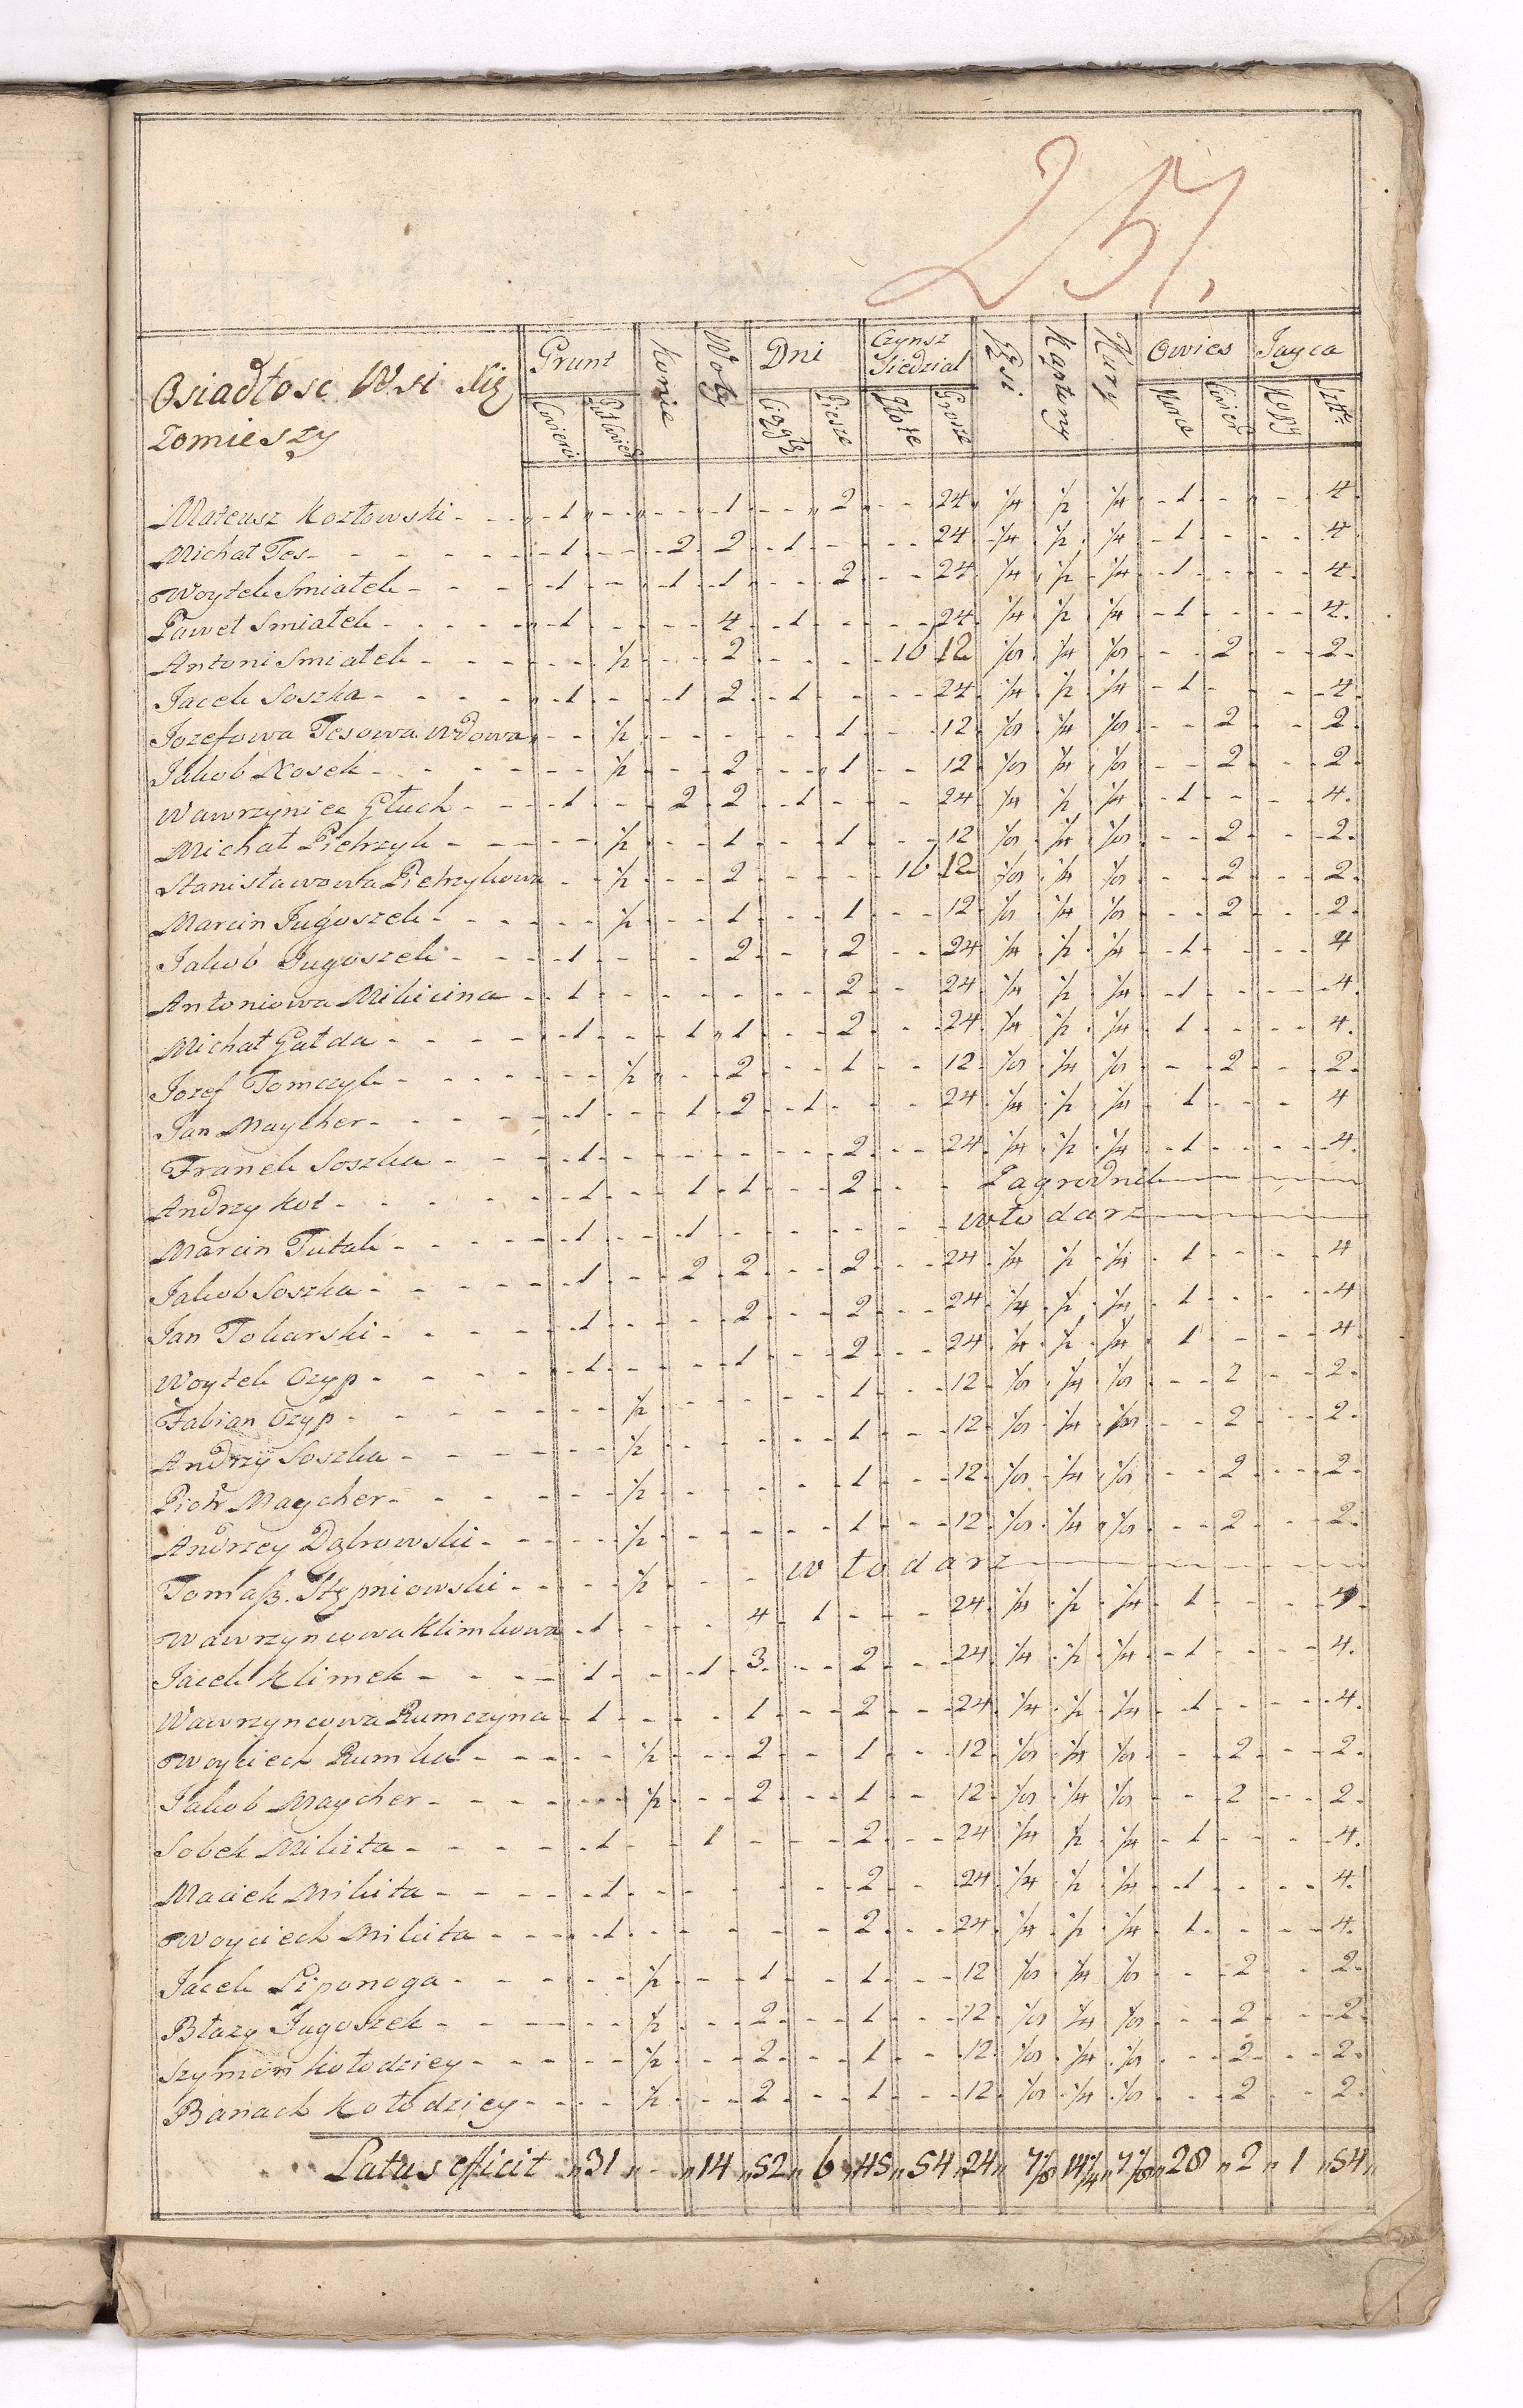 251.
Osiadłosc Wsi Niz
zomieszy
Grunt Konie Woły Dni Czynsz Siedzial Gęsi Kapłony Kury Owies Jayca
Cwierci Puł Cwierc Ciągłe Piesze Złote Grosze Korce Cwierc Kopy Sztu:
Mateusz Kozłowski - 1 - - 1 - 2 - 24 1/4 1/2 1/4 1 - - 4
Michał Tes - 1 - 2 2 1 - - 24 1/4 1/2 1/4 1 - - 4
Woytek Smiałek - 1 - 1 1 - 2 - 24 1/4 1/2 1/4 1 - - 4
Paweł Smiałek - 1 - - 4 1 - - 24 1/4 1/2 1/4 1 - - 4
Antoni Smiałek - - 1/2 - 2 - - 16 12 1/8 1/4 1/8 - 2 - 2
Jacek Soszka - 1 - 1 2 1 - - 24 1/4 1/2 1/4 1 - - 4
Jozefowa Tesowa wdowa - 1/2 - - - 1 - 12 1/8 1/4 1/8 - 2 - 2
Jakob Kosek - - 1/2 - 2 - 1 - 12 1/8 1/4 1/8 - 2 - 2
Wawrzyniec Głuch - 1 - 2 2 1 - - 24 1/4 1/2 1/4 1 - - 4
Michał Pietrzyk - - 1/2 - 1 - 1 - 12 1/8 1/4 1/8 - 2 - 2
Stanisławowa Pietrzykowa - 1/2 - 2 - - 16 12 1/8 1/4 1/8 - 2 - 2
Marcin Jugoszek - - 1/2 - 1 - 1 - 12 1/8 1/4 1/8 - 2 - 2
Jakob Jugoszek - 1 - - 2 - 2 - 24 1/4 1/2 1/4 1 - - 4
Antoniowa Mikicina - 1 - - - - 2 - 24 1/4 1/2 1/4 1 - - 4
Michał Gałda - 1 - 1 1 - 2 - 24 1/4 1/2 1/4 1 - - 4
Jozef Tomczyk - - 1/2 - 2 - 1 - 12 1/8 1/4 1/8 - 2 - 2
Jan Maycher - 1 - 1 2 1 - - 24 1/4 1/2 1/4 1 - - 4
Franek Soszka - 1 - - - - 2 - 24 1/4 1/2 1/4 1 - - 4
Andrzy Kot - 1 - 1 1 - 2 - Zagrodnik
Marcin Tutak - 1 - 1 - - - - włodarz
Jakob Soszka - 1 - 2 2 - 2 - 24 1/4 1/2 1/4 1 - - 4
Jan Tokarski - 1 - - 2 - 2 - 24 1/4 1/2 1/4 1 - - 4
Woytek Czyp - 1 - - 1 - 2 - 24 1/4 1/2 1/4 1 - - 4
Fabian Czyp - - 1/2 - - - 1 - 12 1/8 1/4 1/8 - 2 - 2
Andrzy Soszka - - 1/2 - - - 1 - 12 1/8 1/4 1/8 - 2 - 2
Piotr Maycher - - 1/2 - - - 1 - 12 1/8 1/4 1/8 - 2 - 2
Andrzey Dąbrowski - - 1/2 - - - 1 - 12 1/8 1/4 1/8 - 2 - 2
Tomasz. Stępniowski - - 1/2 - - włodarz
Wawrzyncowa Klimkowa - 1 - - 4 1 - - 24 1/4 1/2 1/4 1 - - 4
Jacek Klimek - 1 - 1 3 - 2 - 24 1/4 1/2 1/4 1 - - 4
Wawrzyncowa Rumczyna - 1 - - 1 - 2 - 24 1/4 1/2 1/4 1 - - 4
Woyciech Rumka - - 1/2 - 2 - 1 - 12 1/8 1/4 1/8 - 2 - 2
Jakob Maycher - - 1/2 - 2 - 1 - 12 1/8 1/4 1/8 - 2 - 2
Sobek Mikita - 1 - 1 - - 2 - 24 1/4 1/2 1/4 1 - - 4
Maciek Mikita - 1 - - - - 2 - 24 1/4 1/2 1/4 1 - - 4
Woyciech Mikita - 1 - - - - 2 - 24 1/4 1/2 1/4 1 - - 4
Jacek Liponoga - - 1/2 - 1 - 1 - 12 1/8 1/4 1/8 - 2 - 2
Błazy Jugoszek - - 1/2 - 2 - 1 - 12 1/8 1/4 1/8 - 2 - 2
Szymon Kołodziey - - 1/2 - 2 - 1 - 12 1/8 1/4 1/8 - 2 - 2
Banach Kołodziey - - 1/2 - 2 - 1 - 12 1/8 1/4 1/8 - 2 - 2
Latus efficit 31 - 14 52 6 45 54 24 7 1/8 14 1/4 7 1/8 28 2 1 54